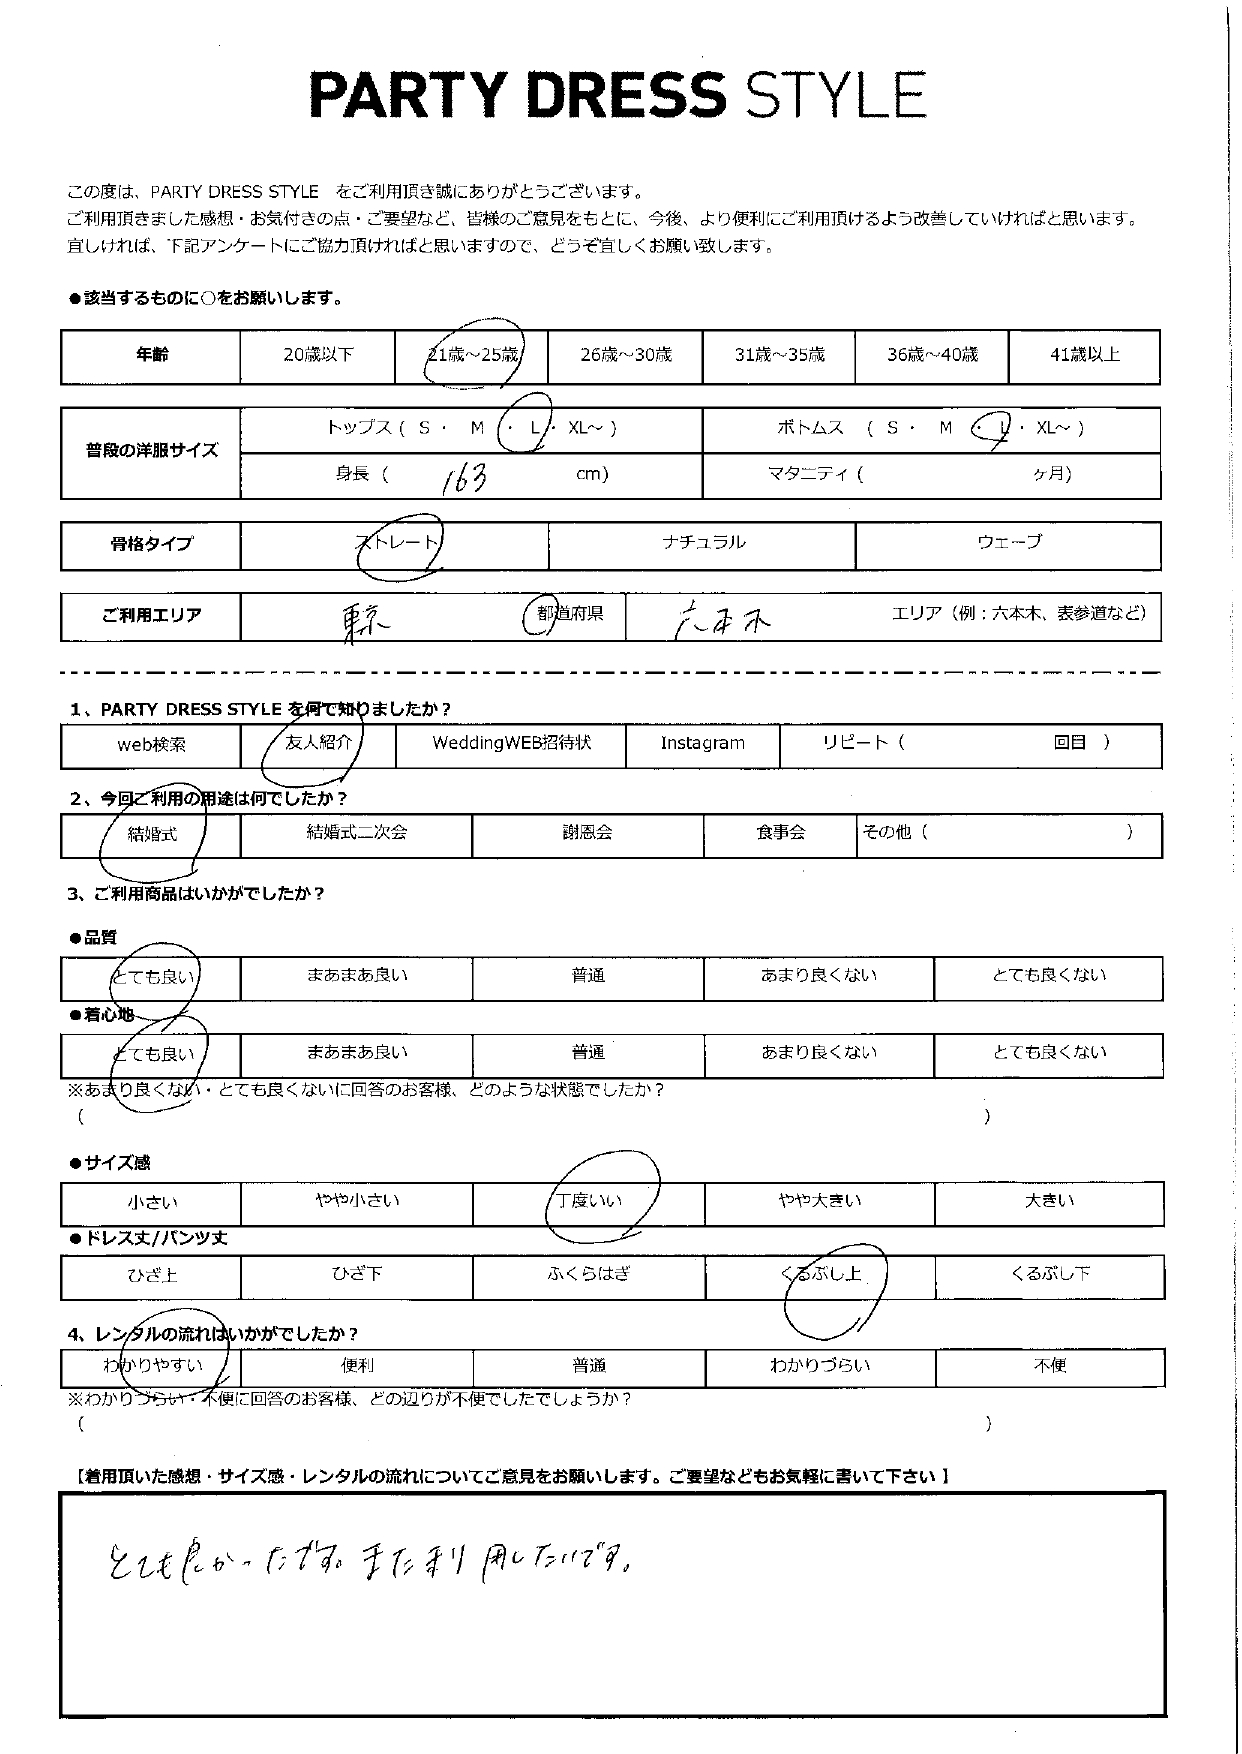 PARTY DRESS STYLE
この度は、PARTY DRESS STYLE をご利用頂き誠にありがとうございます。
ご利用頂きました感想・お気付きの点・ご要望など、皆様のご意見をもとに、今後、より便利にご利用頂けるよう改善していければと思います。
宜しければ、下記アンケートにご協力頂ければと思いますので、どうぞ宜しくお願い致します。
●該当するものに○をお願いします。
年齢 20歳以下 21歳～25歳 26歳～30歳 31歳～35歳 36歳～40歳 41歳以上
普段の洋服サイズ トップス ( S ・ M ・ L ・ XL～ ) ボトムス ( S ・ M ・ L ・ XL～ )
身長 ( 163 cm) マタニティ ( ヶ月)
骨格タイプ ストレート ナチュラル ウェーブ
ご利用エリア 東京 都道府県 六本木 エリア（例：六本木、表参道など）
1、PARTY DRESS STYLE を何で知りましたか？
web検索 友人紹介 WeddingWEB招待状 Instagram リピート ( 回目 )
2、今回ご利用の用途は何でしたか？
結婚式 結婚式二次会 謝恩会 食事会 その他 ( )
3、ご利用商品はいかがでしたか？
●品質
とても良い まあまあ良い 普通 あまり良くない とても良くない
●着心地
とても良い まあまあ良い 普通 あまり良くない とても良くない
※あまり良くない・とても良くないに回答のお客様、どのような状態でしたか？
( )
●サイズ感
小さい やや小さい 丁度いい やや大きい 大きい
●ドレス丈/パンツ丈
ひざ上 ひざ下 ふくらはぎ くるぶし上 くるぶし下
4、レンタルの流れはいかがでしたか？
わかりやすい 便利 普通 わかりづらい 不便
※わかりづらい・不便に回答のお客様、どの辺りが不便でしたでしょうか？
( )
【着用頂いた感想・サイズ感・レンタルの流れについてご意見をお願いします。ご要望などもお気軽に書いて下さい】
とても良かったです。またまり用したいです。